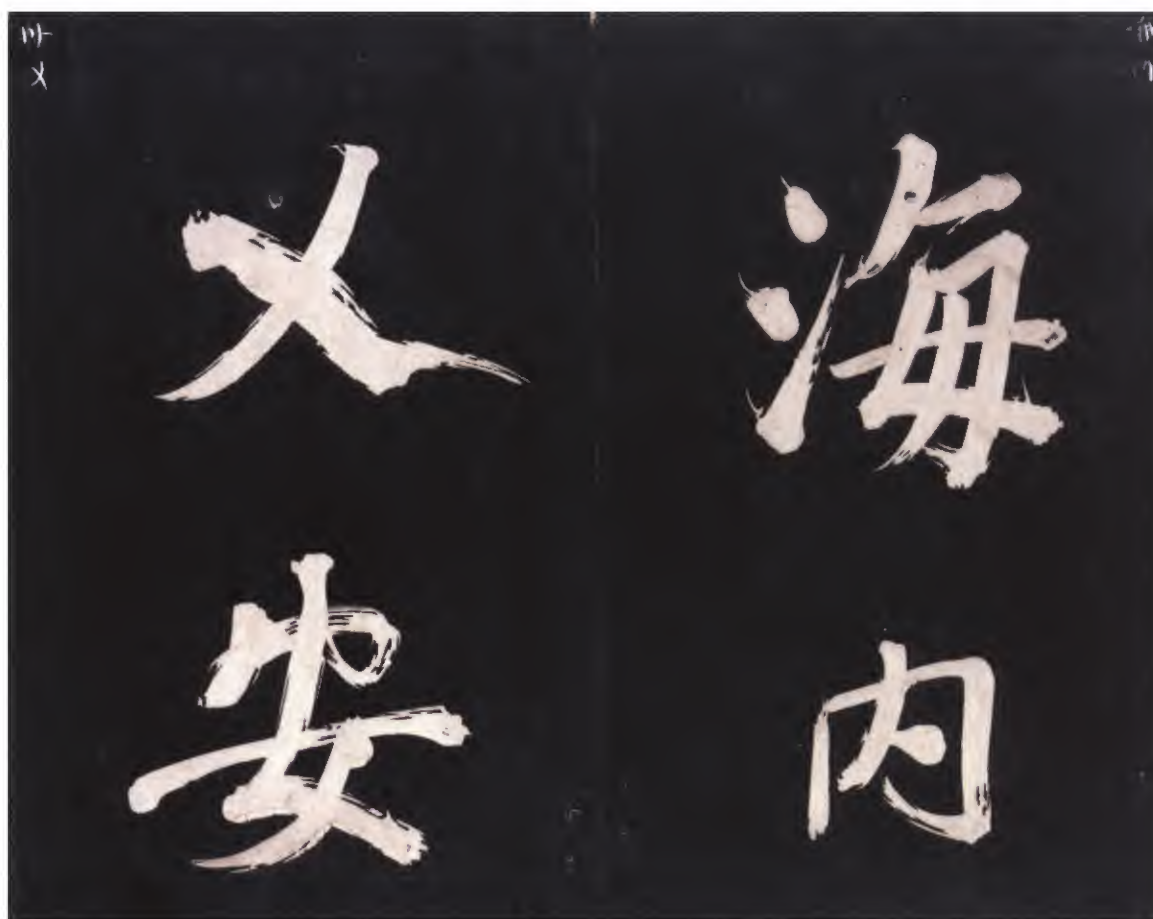 海内
乂安